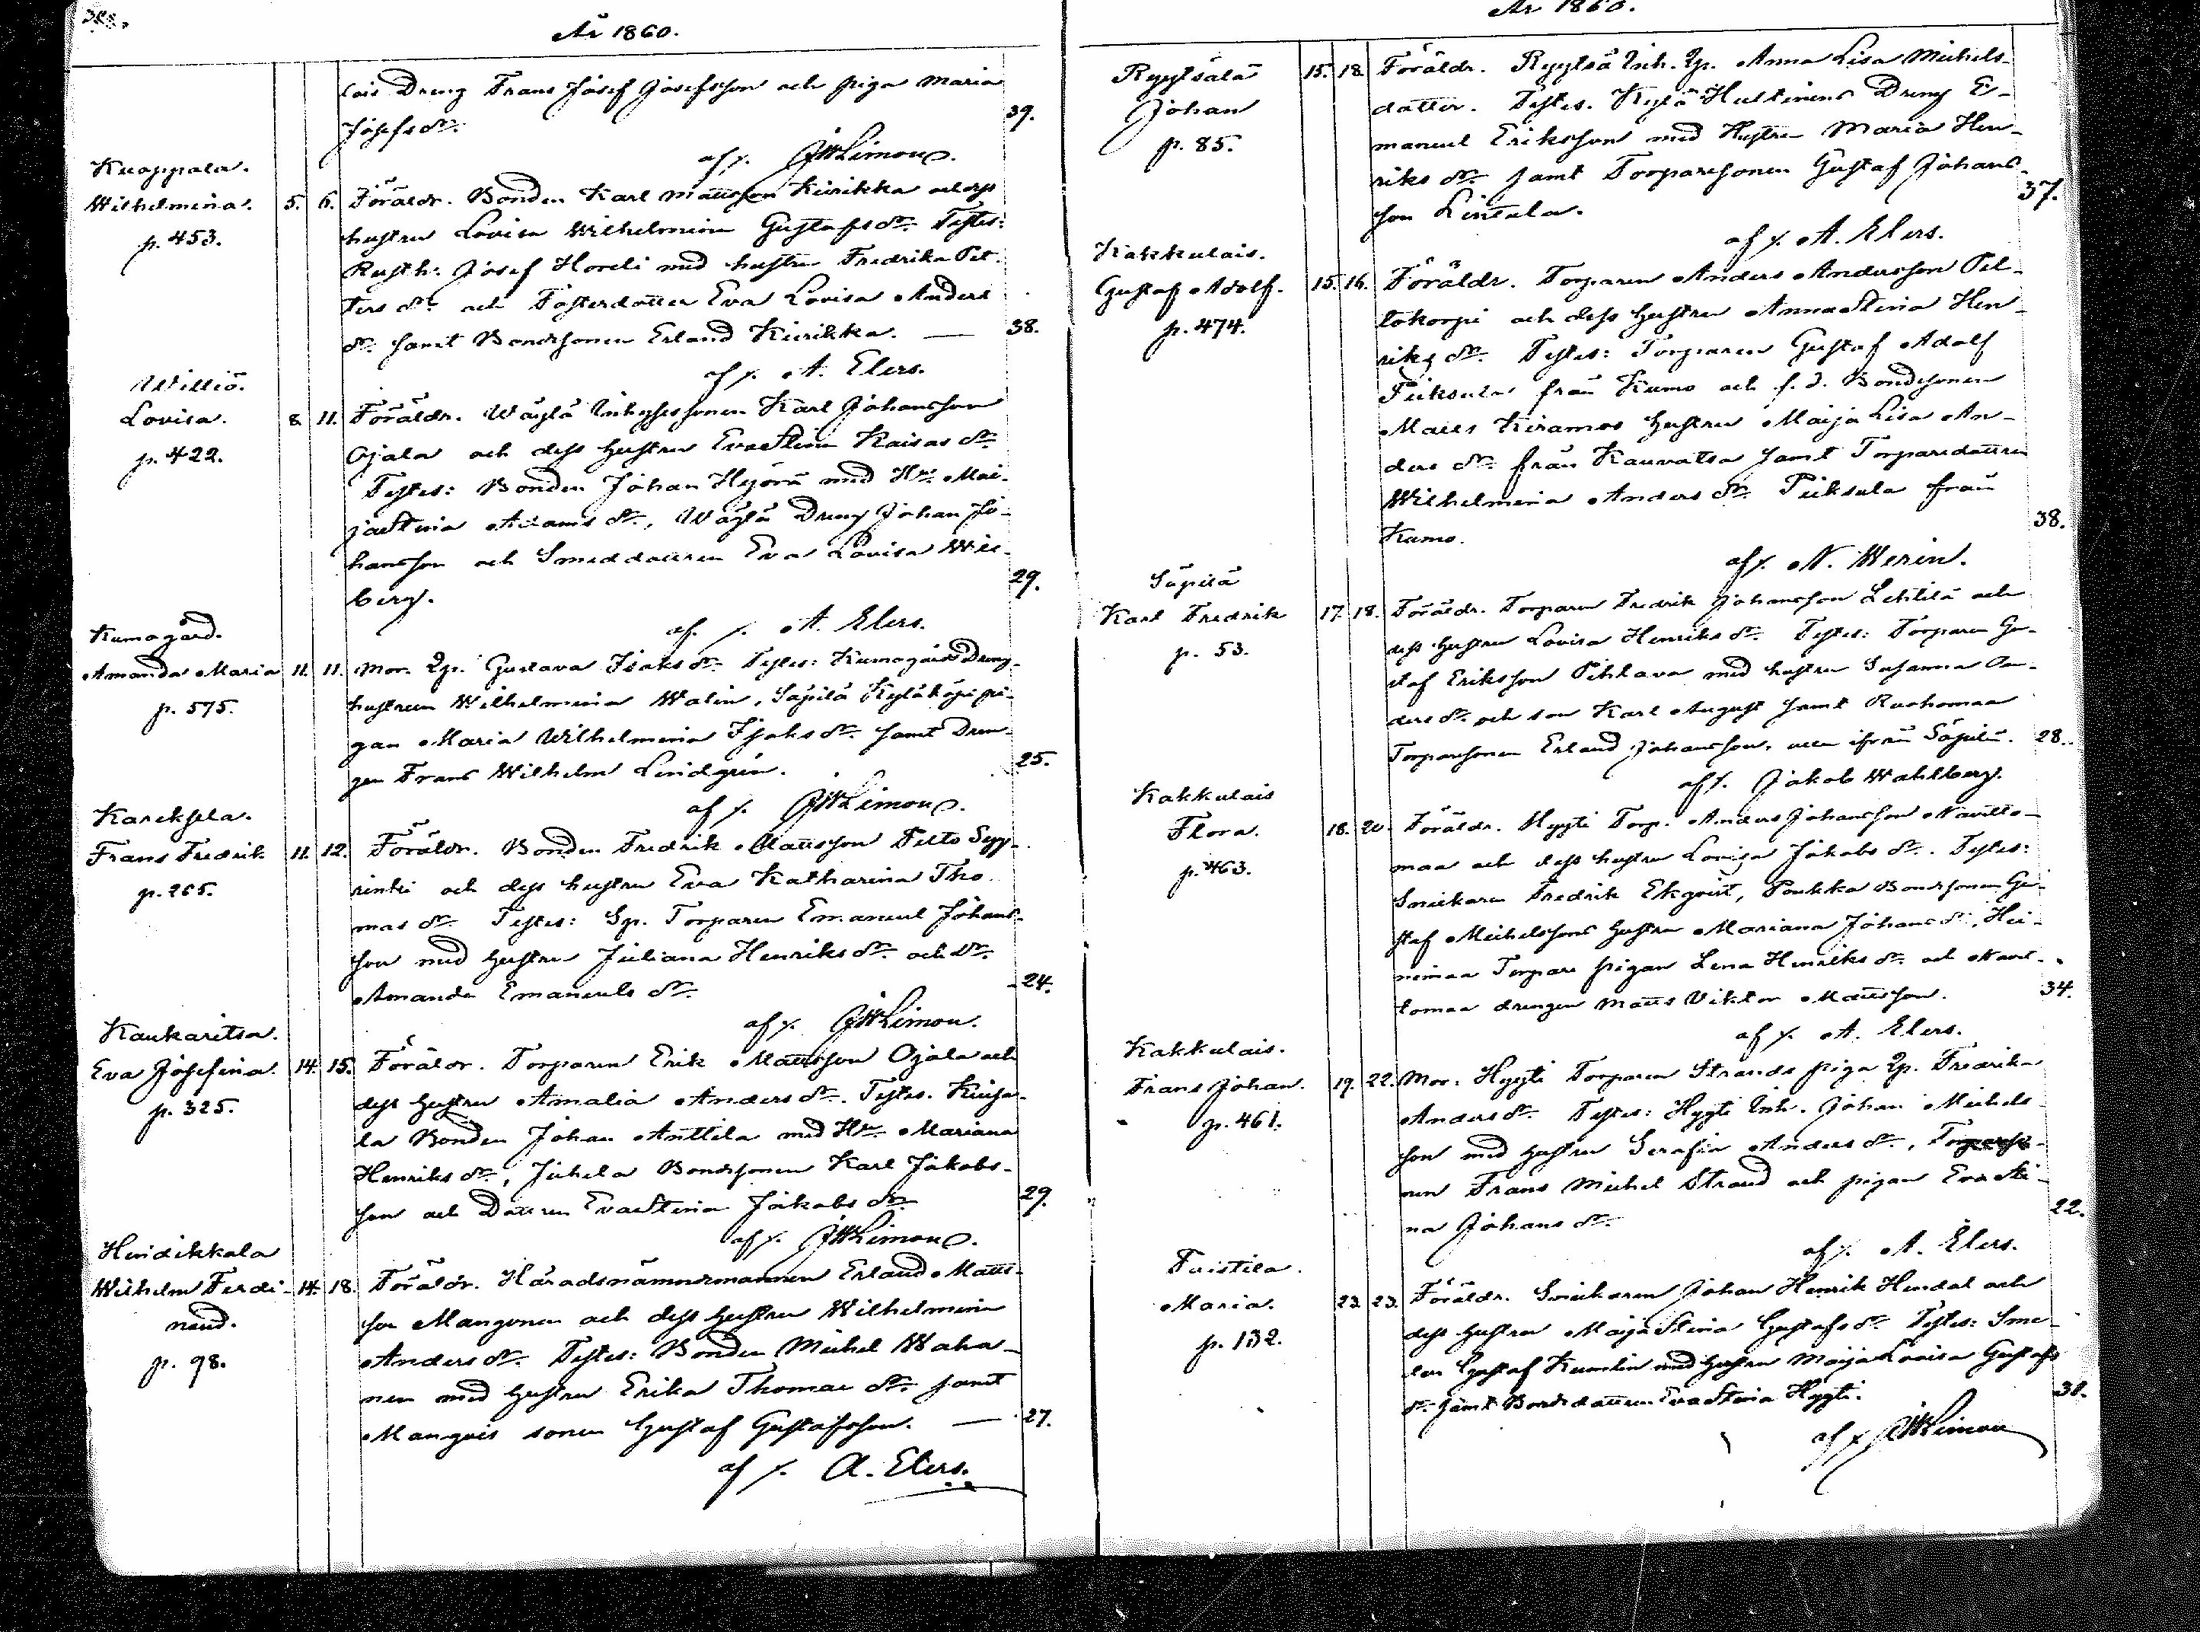 År 1860.
Dreng Frans Josef Josefsson och piga Maria
Josefs dr.
39.
af /.
Knoppala.
Wilhelmina. 5. 6. Föräldr. Bonden Karl Mattsson Kiirikka och dess
p. 453.
hustru Lovisa Wilhelmina Gustafs dr. Testes:
Rusth: Josef Horeli med hustru Fredrika Pet-
ters dr. och Fosterdotter Eva Lovisa Anders
dr. samt Bondesonen Erland Kiirikka. — 38.
af /. A. Elers.
Williö.
Lovisa. 8. 11. Föräldr. Wäylä Inhysessonen Karl Johansson
p. 422.
Ojala och dess hustru Eva Stina Kaisas dr.
Testes: Bonden Johan Hyörä med Hu. Mai-
ja Stina Adams dr., Wäylä Dreng Johan Jo-
hansson och Smeddottren Eva Lovisa Wis-
berg.
29.
af. /. A. Elers.
Kumogård.
Amanda Maria 11. 11. Mor. Lp. Gustava Isaks dr. Testes: Kumogårds Dreng-
p. 575.
hustrun Wilhelmina Walin, Säpilä Kyläköpi pi-
gan Maria Wilhelmina Isaks dr. samt Dren-
gen Frans Wilhelm Lindgrén.
25.
af /.
Kareksela.
Frans Fredrik 11. 12. Föräldr. Bonden Fredrik Mattsson Pelto Sepp-
p. 265.
och dess hustru Eva Katharina Tho-
mas dr. Testes: Sp. Torparen Emanuel Johans-
son med hustru Juliana Henriks dr. och Dr.
Amanda Emanuels dr.
24.
af /.
Kaukaritsa.
Eva Josefina. 14. 15. Föräldr. Torparen Erik Mattsson Ojala och
p. 325.
dess hustru Amalia Anders dr. Testes.
la Bonden Johan Anttila med Hu. Mariana
Henriks dr., Juhela Bondesonen Karl Jakobs-
son och Dottren Eva Stina Jakobs dr.
29.
af /.
Hindikkala
Wilhelm Ferdi- 14. 18. Föräldr. Häradsnämndemannen Erland Matts-
nand.
p. 98.
son Mangonen och dess hustru Wilhelmina
Anders dr. Testes: Bonden Michel Waha-
nen med hustru Erika Thomae dr. samt
sonen Gustaf Gustafsson. — 27.
af /. A. Elers.
År 1860.
Ryytsälä 15. 18. Föräldr. Ryytsä Inh. Lp. Anna Lisa Michels-
Johan
p. 85.
dotter. Testes. Kylä Huttinens Dreng E-
manuel Eriksson med Hustru Maria Hen-
riks dr. samt Torparesonen Gustaf Johans-
son Lintala.
37.
af /. A. Elers.
Kakkulais.
Gustaf Adolf. 15. 16. Föräldr. Torparen Anders Andersson Pel-
p. 474.
tokorpi och dess hustru Anna Stina Hen-
riks dr. Testes: Torparen Gustaf Adolf
Piiksula från Kumo och f. d. Bondesonen
Matts Kiramos hustru Maija Lisa An-
ders dr. från Kauvatsa samt Torparedottren
Wilhelmina Anders dr. Piiksula från
Kumo.
38.
af /. N. Merin.
Säpilä
Karl Fredrik 17. 18. Föräldr. Torparen Fredrik Johansson Lehtilä och
p. 53.
dess hustru Lovisa Henriks dr. Testes: Torparen Gu-
staf Eriksson Pihlava med hustru Susanna An-
ders dr. och son Karl August samt Ruohomaa
Torparesonen Erland Johansson, ifrån Säpilä. 28.
af /. Jakob Wahlberg.
Kakkulais
Flora. 18. 20. Föräldr. Hyyti Torp. Anders Johansson Navitto-
p. 463.
maa och dess hustru Lovisa Jakobs dr. Testes:
Snickaren Fredrik Ekqvist, Poukka Bondsonen Gu-
staf Michelssons hustru Mariana Johans dr., Hei-
nimaa Torpare pigan Lena Henriks dr. och
tomaa drengen Matts Viktor Mattsson.
34.
af /. A. Elers.
Kakkulais.
Frans Johan. 19. 22. Mor: Hyyti Torparen Strands piga Lp. Fredrika
p. 461.
Anders dr. Testes: Hyyti Inh. Johan Michels-
son med hustru Serafia Anders dr., Torpareso-
nen Frans Michel Strand och pigan Eva Sti-
na Johans dr.
22.
af /. A. Elers.
Tuistila.
Maria. 23. 23. Föräldr. Snickaren Johan Henrik Hendal och
p. 132.
dess hustru Maija Stina Gustafs dr. Testes: Sme-
den Gustaf Kumlin med hustru Maija Lovisa Gustafs
dr. samt Bondedottren Eva Stina Hyyti.
31.
af /.